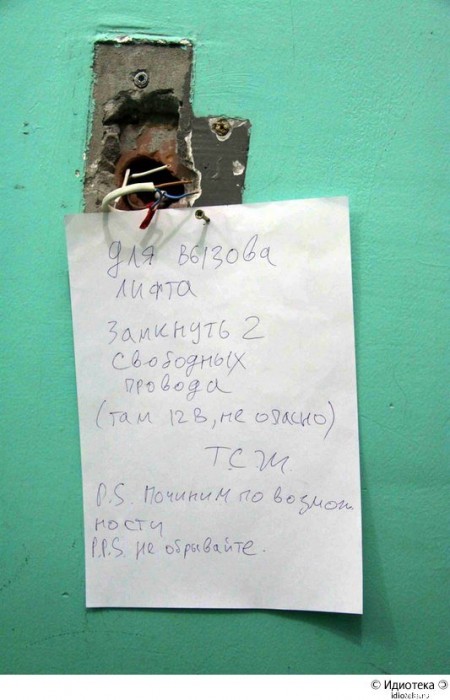 для вызова
лифта
Замкнуть 2
свободных
провода
(там 12В, не опасно)
ТСЖ
P.S. починим по возмож
ности
P.P.S. не обрывайте.
© Идиотека
idioteka.ru